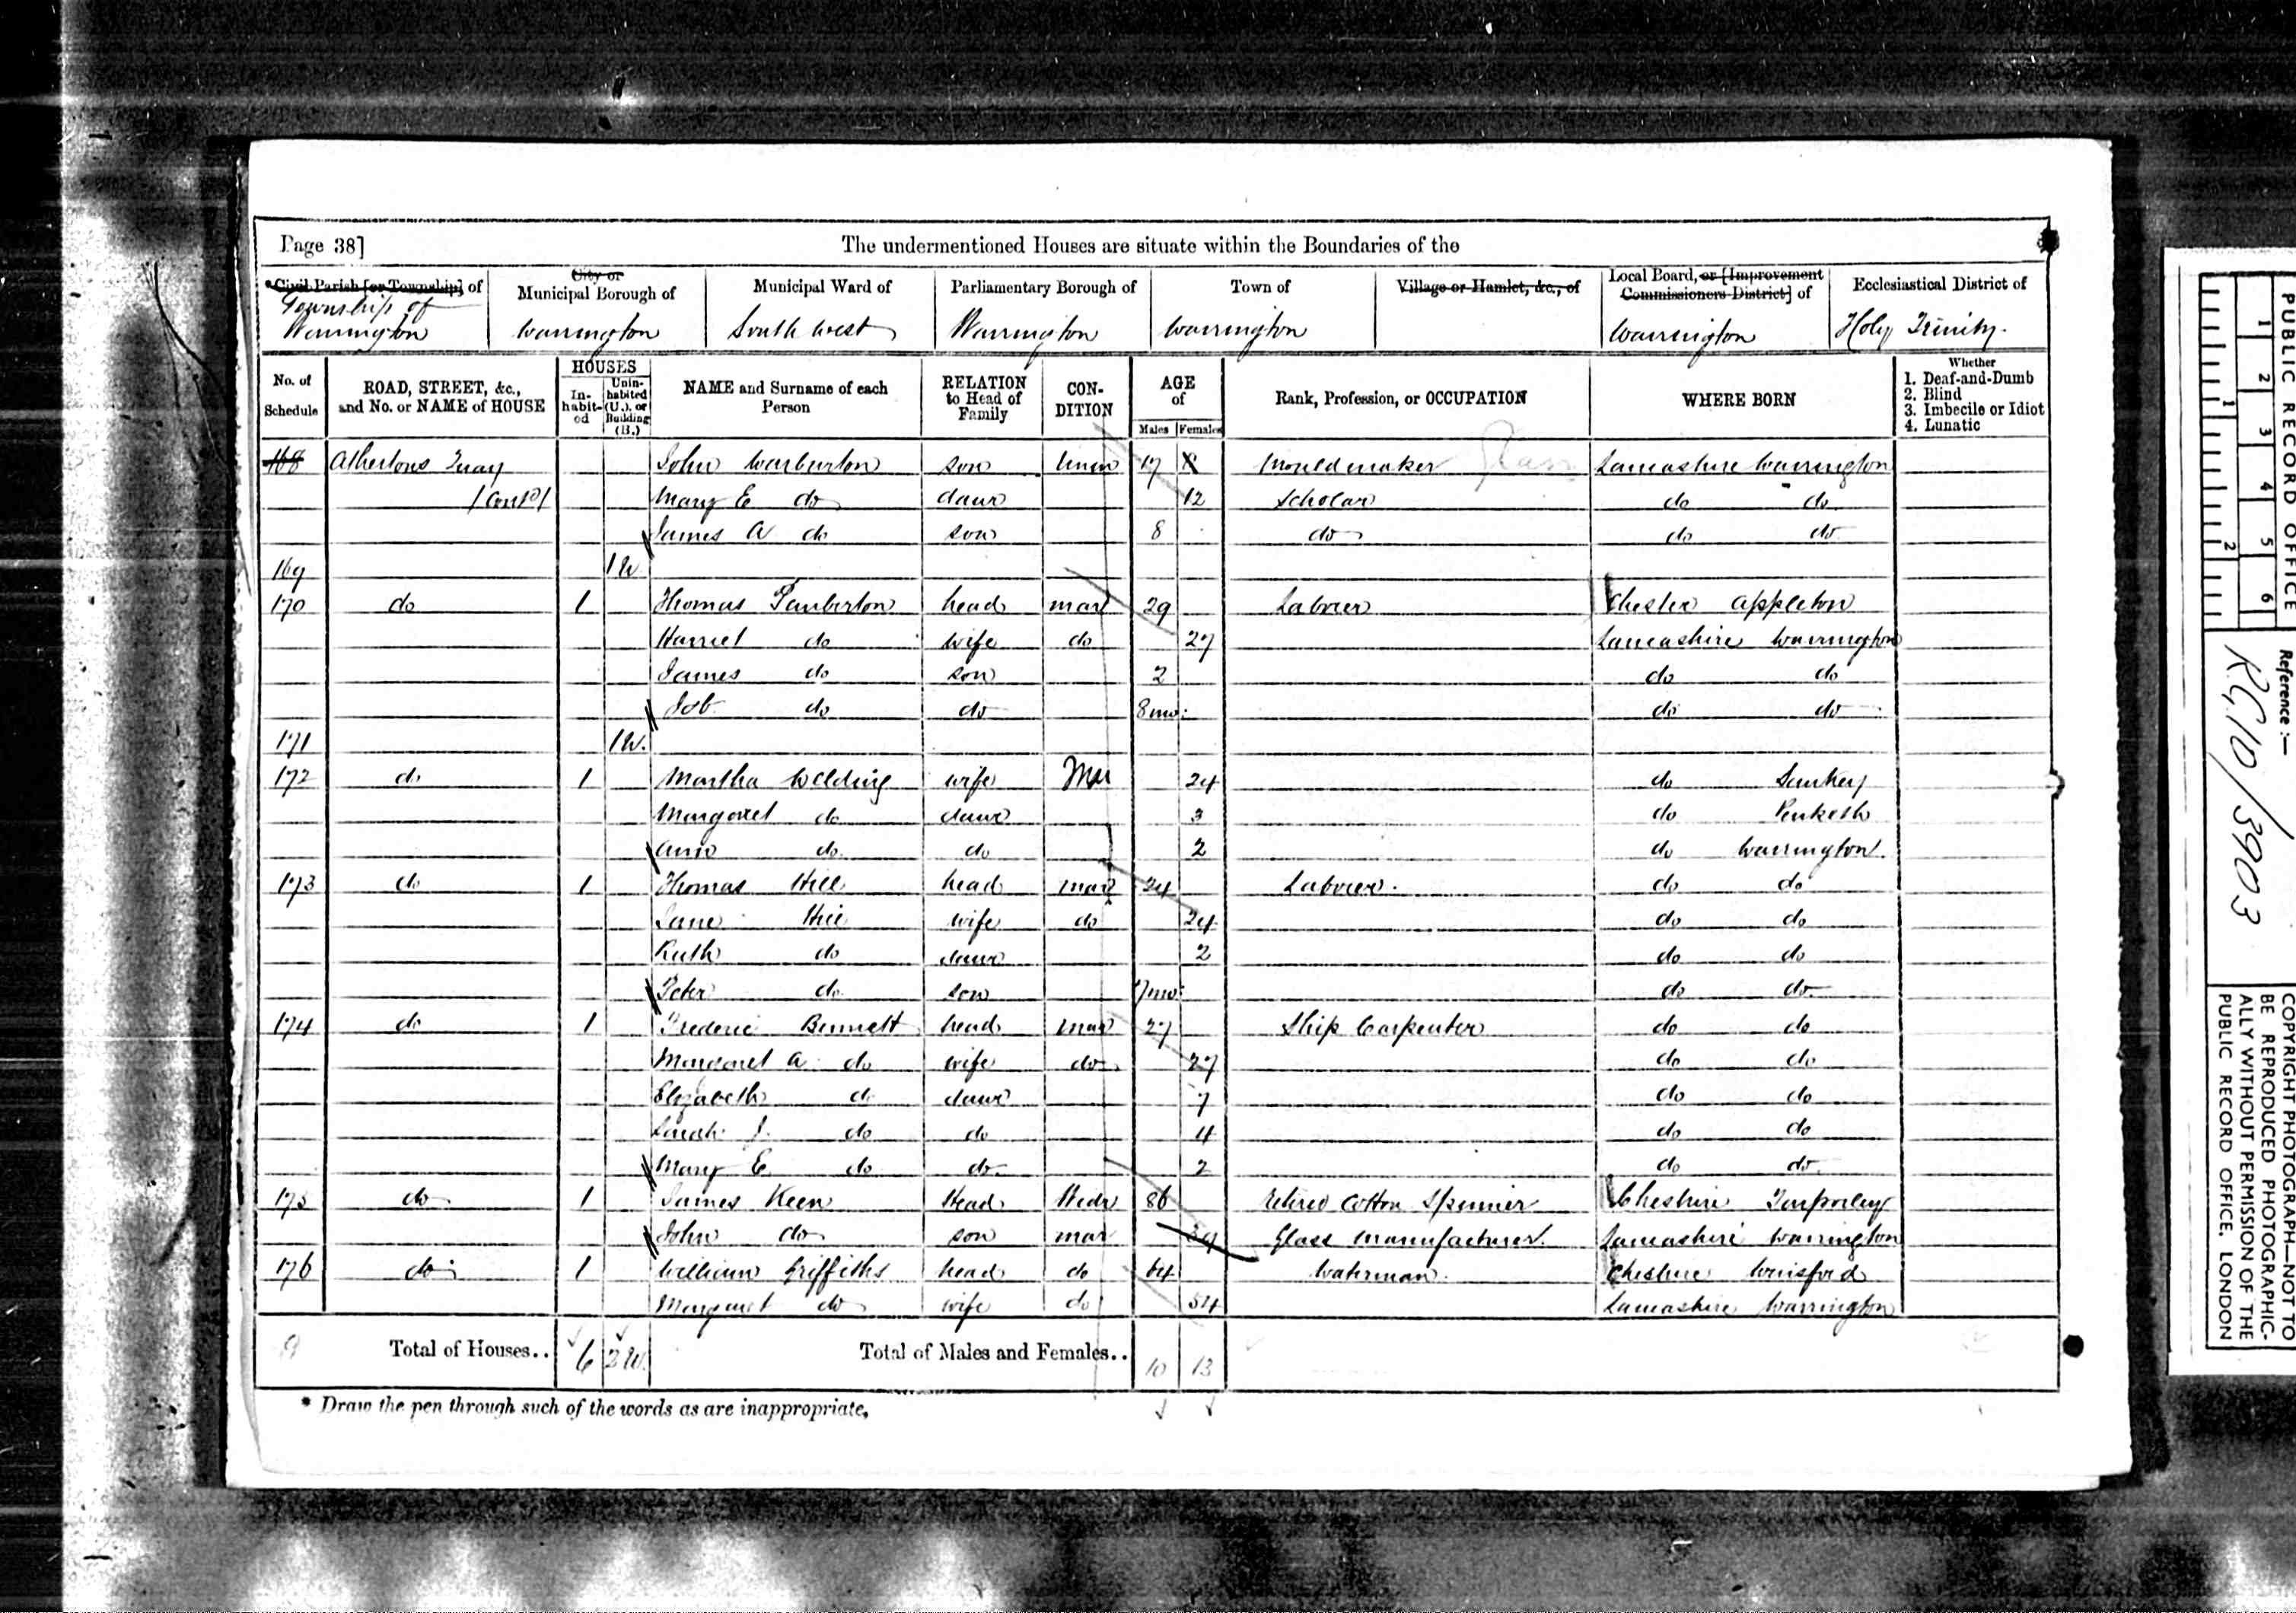 Page 38]
The undermentioned Houses are situate within the Boundaries of the
*Civil Parish [or Township] of
Township of
Warrington
City or
Municipal Borough of
Warrington
Municipal Ward of
South West
Parliamentary Borough of
Warrington
Town of
Warrington
Village or Hamlet, &c., of
Local Board, or [Improvement
Commissioners District] of
Warrington
Ecclesiastical District of
Holy Trinity.
No. of Schedule
ROAD, STREET, &c., and No. or NAME of HOUSE
HOUSES
In-habit-ed
Unin-habited (U.), or Building (B.)
NAME and Surname of each Person
RELATION to Head of Family
CON-DITION
AGE of
Males Females
Rank, Profession, or OCCUPATION
WHERE BORN
Whether
1. Deaf-and-Dumb
2. Blind
3. Imbecile or Idiot
4. Lunatic
168 Athertons Quay John Warburton son Unm 17 Mouldmaker Glass Lancashire Warrington
(Contd) Mary E do daur 12 Scholar do do
James A do son 8 do do do
169 1 U
170 do 1 Thomas Pemberton head mar 29 Labourer Chester Appleton
Harriet do wife do 27 Lancashire Warrington
James do son 2 do do
Job do do 8 mo: do do
171 1 U.
172 do 1 Martha Welding wife Mar 24 do Sankey
Margaret do daur 3 do Penketh
Ann do do 2 do Warrington.
173 do 1 Thomas Hill head mar 24 Labourer. do do
Jane Hill wife do 24 do do
Ruth do daur 2 do do
Peter do son 7 mo: do do
174 do 1 Frederic Bennett head mar 27 Ship Carpenter do do
Margaret A do wife do 27 do do
Elizabeth do daur 7 do do
Sarah J. do do 4 do do
Mary E do do 2 do do
175 do 1 James Keen Head Widr 86 retired Cotton Spinner Cheshire Tarporley
John do son mar 39 Glass Manufacturer. Lancashire Warrington
176 do 1 William Griffiths head do 64 Waterman. Cheshire Winsford
Margaret do wife do 54 Lancashire Warrington
9 Total of Houses.. 6 2 U. Total of Males and Females.. 10 13
* Draw the pen through such of the words as are inappropriate.
PUBLIC RECORD OFFICE
1 2 3 4 5 6
1 2
Reference :—
RG 10/3903
COPYRIGHT PHOTOGRAPH—NOT TO
BE REPRODUCED PHOTOGRAPHIC-
ALLY WITHOUT PERMISSION OF THE
PUBLIC RECORD OFFICE, LONDON